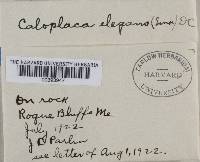 Caloplaca elegans (Link) DC
THE HARVARD UNIVERSITY HERBARIA
FARLOW HERBARIUM
HARVARD
UNIVERSITY
On rock
Roque Bluffs Me.
July, 1922
J C Parlin
see letter of Aug 1, 1922.